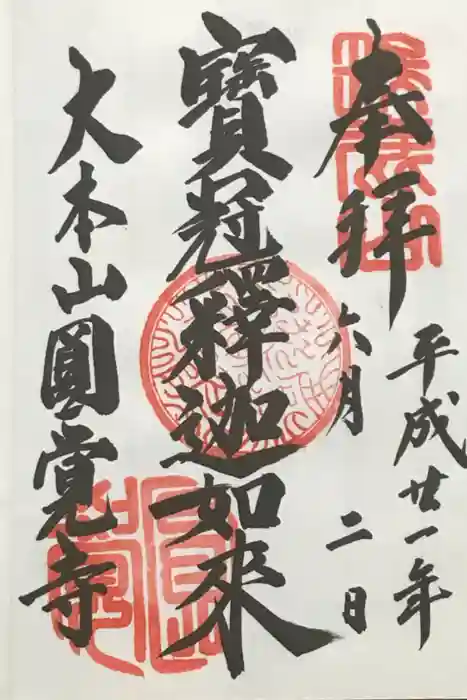 奉拝
平成廿一年
六月二日
寶冠釋迦如来
大本山圓覚寺